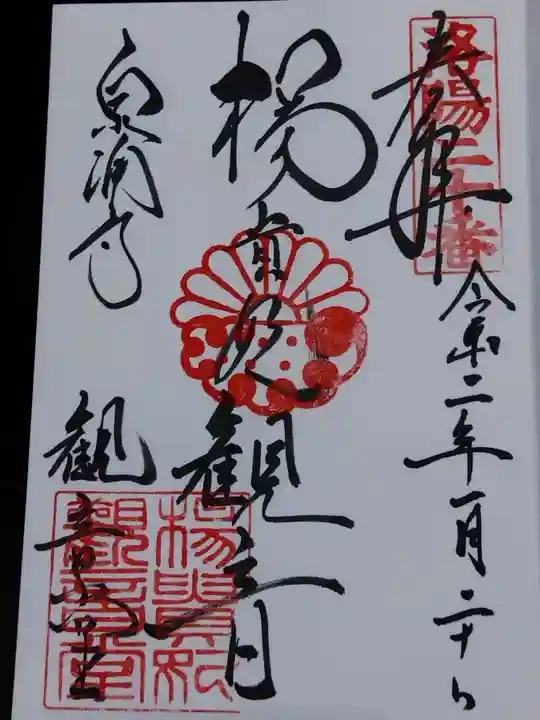 洛陽二十番
奉拝
令和二年一月二十日
楊貴妃観音
泉涌寺
観音堂
楊貴妃
観音堂